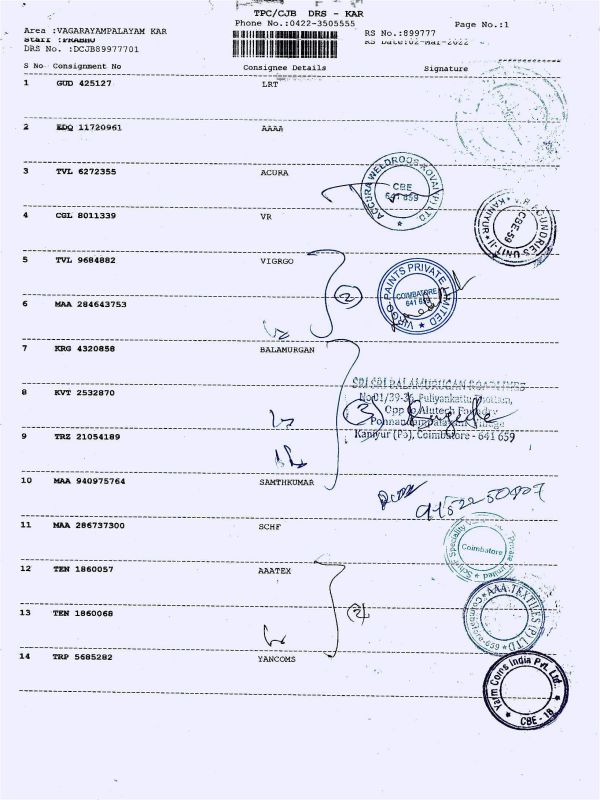 TPC/CJB DRS - KAR
Phone No.:0422-3505555
Page No.:1
Area :VAGARAYAMPALAYAM KAR
RS No.:899777
Staff :PRABHU
RS Date:02-Mar-2022
DRS No. :DCJB89977701
S No Consignment No Consignee Details Signature
1 GUD 425127 LRT
2 EDQ 11720961 AAAA
3 TVL 6272355 ACURA
ACCURA WELDRODS KOVAI (P) LTD.
CBE
641 659
4 CGL 8011339 VR
V.R. FOUNDRIES UNIT-II
KANIYUR
CBE-59
5 TVL 9684882 VIGRGO
VIRGO PAINTS PRIVATE LIMITED
COIMBATORE
641 659
2
6 MAA 284643753
7 KRG 4320858 BALAMURGAN
SRI SRI BALAMURUGAN ROADLINES
No:01/39-36, Puliyankattu Thottam,
Opp to Alutech Foundry
Ponnandampalayam Village
Kaniyur (PO), Coimbatore - 641 659
3
8 KVT 2532870
9 TRZ 21054189
10 MAA 940975764 SAMTHKUMAR
11 MAA 286737300 SCHF
Coimbatore
12 TEN 1860057 AAATEX
AAA TEXTILES (P) LTD
2
13 TEN 1860068
14 TRP 5685282 YANCOMS
Yarn Coms India Pvt. Ltd.
CBE - 18